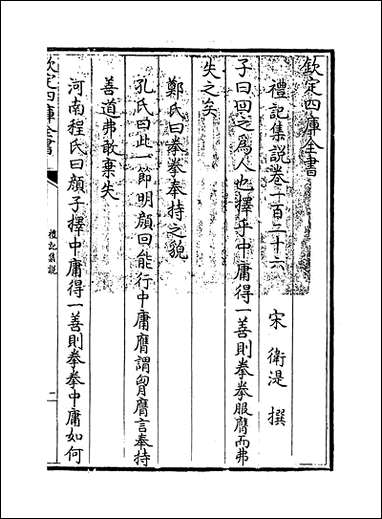 欽定四庫全書
禮記集說卷一百二十六
宋 衛湜 撰
子曰回之為人也擇乎中庸得一善則拳拳服膺而弗
失之矣
鄭氏曰拳拳奉持之貌
孔氏曰此一節明顏回能行中庸膺謂胷膺言奉持
善道弗敢棄失
河南程氏曰顏子擇中庸得一善則拳拳中庸如何
欽定四庫全書
禮記集說